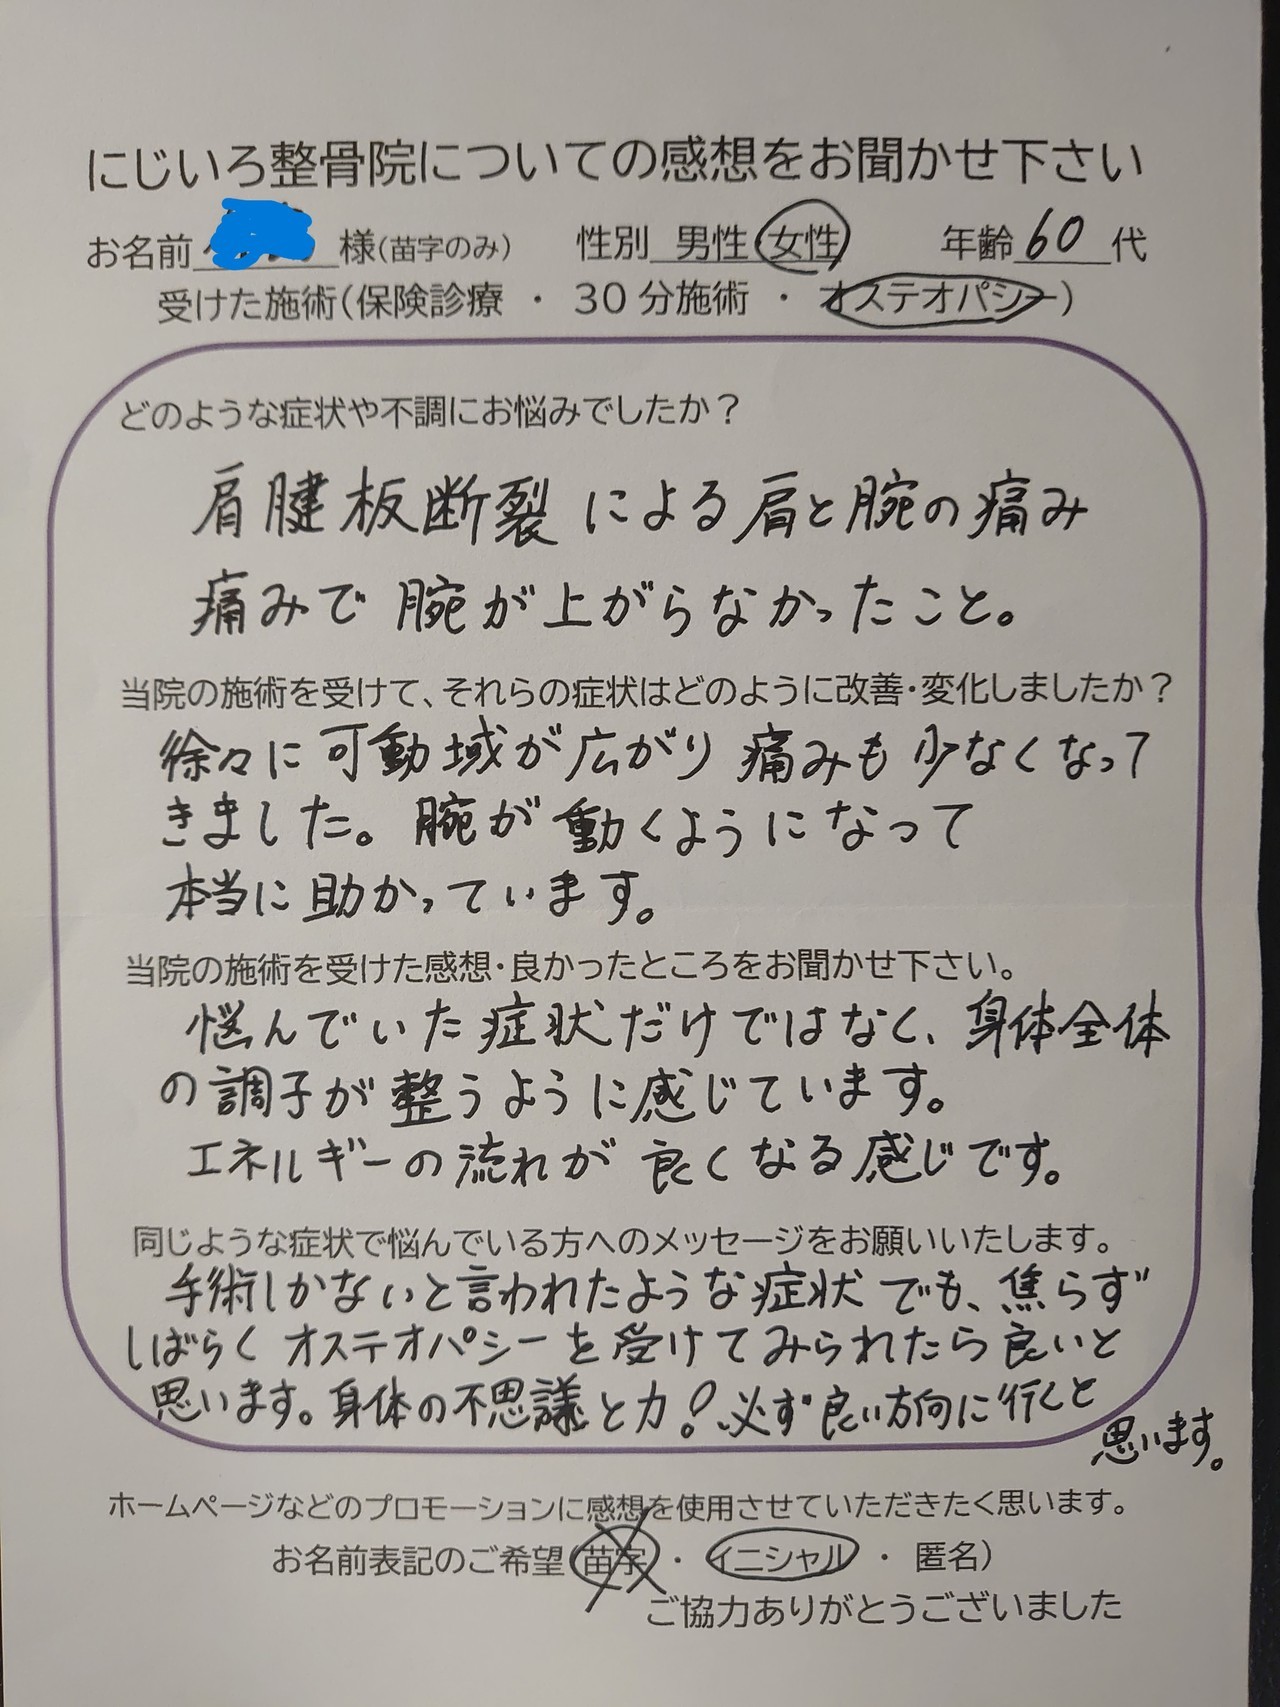 にじいろ整骨院についての感想をお聞かせ下さい
お名前 様(苗字のみ) 性別 男性 女性 年齢 60 代
受けた施術(保険診療 ・ 30分施術 ・ オステオパシー)
どのような症状や不調にお悩みでしたか?
肩腱板断裂による肩と腕の痛み
痛みで腕が上がらなかったこと。
当院の施術を受けて、それらの症状はどのように改善・変化しましたか?
徐々に可動域が広がり痛みも少なくなって
きました。腕が動くようになって
本当に助かっています。
当院の施術を受けた感想・良かったところをお聞かせ下さい。
悩んでいた症状だけではなく、身体全体
の調子が整うように感じています。
エネルギーの流れが良くなる感じです。
同じような症状で悩んでいる方へのメッセージをお願いいたします。
手術しかないと言われたような症状でも、焦らず
しばらくオステオパシーを受けてみられたら良いと
思います。身体の不思議と力!必ず良い方向に行くと
思います。
ホームページなどのプロモーションに感想を使用させていただきたく思います。
お名前表記のご希望(苗字 ・ イニシャル ・ 匿名)
ご協力ありがとうございました